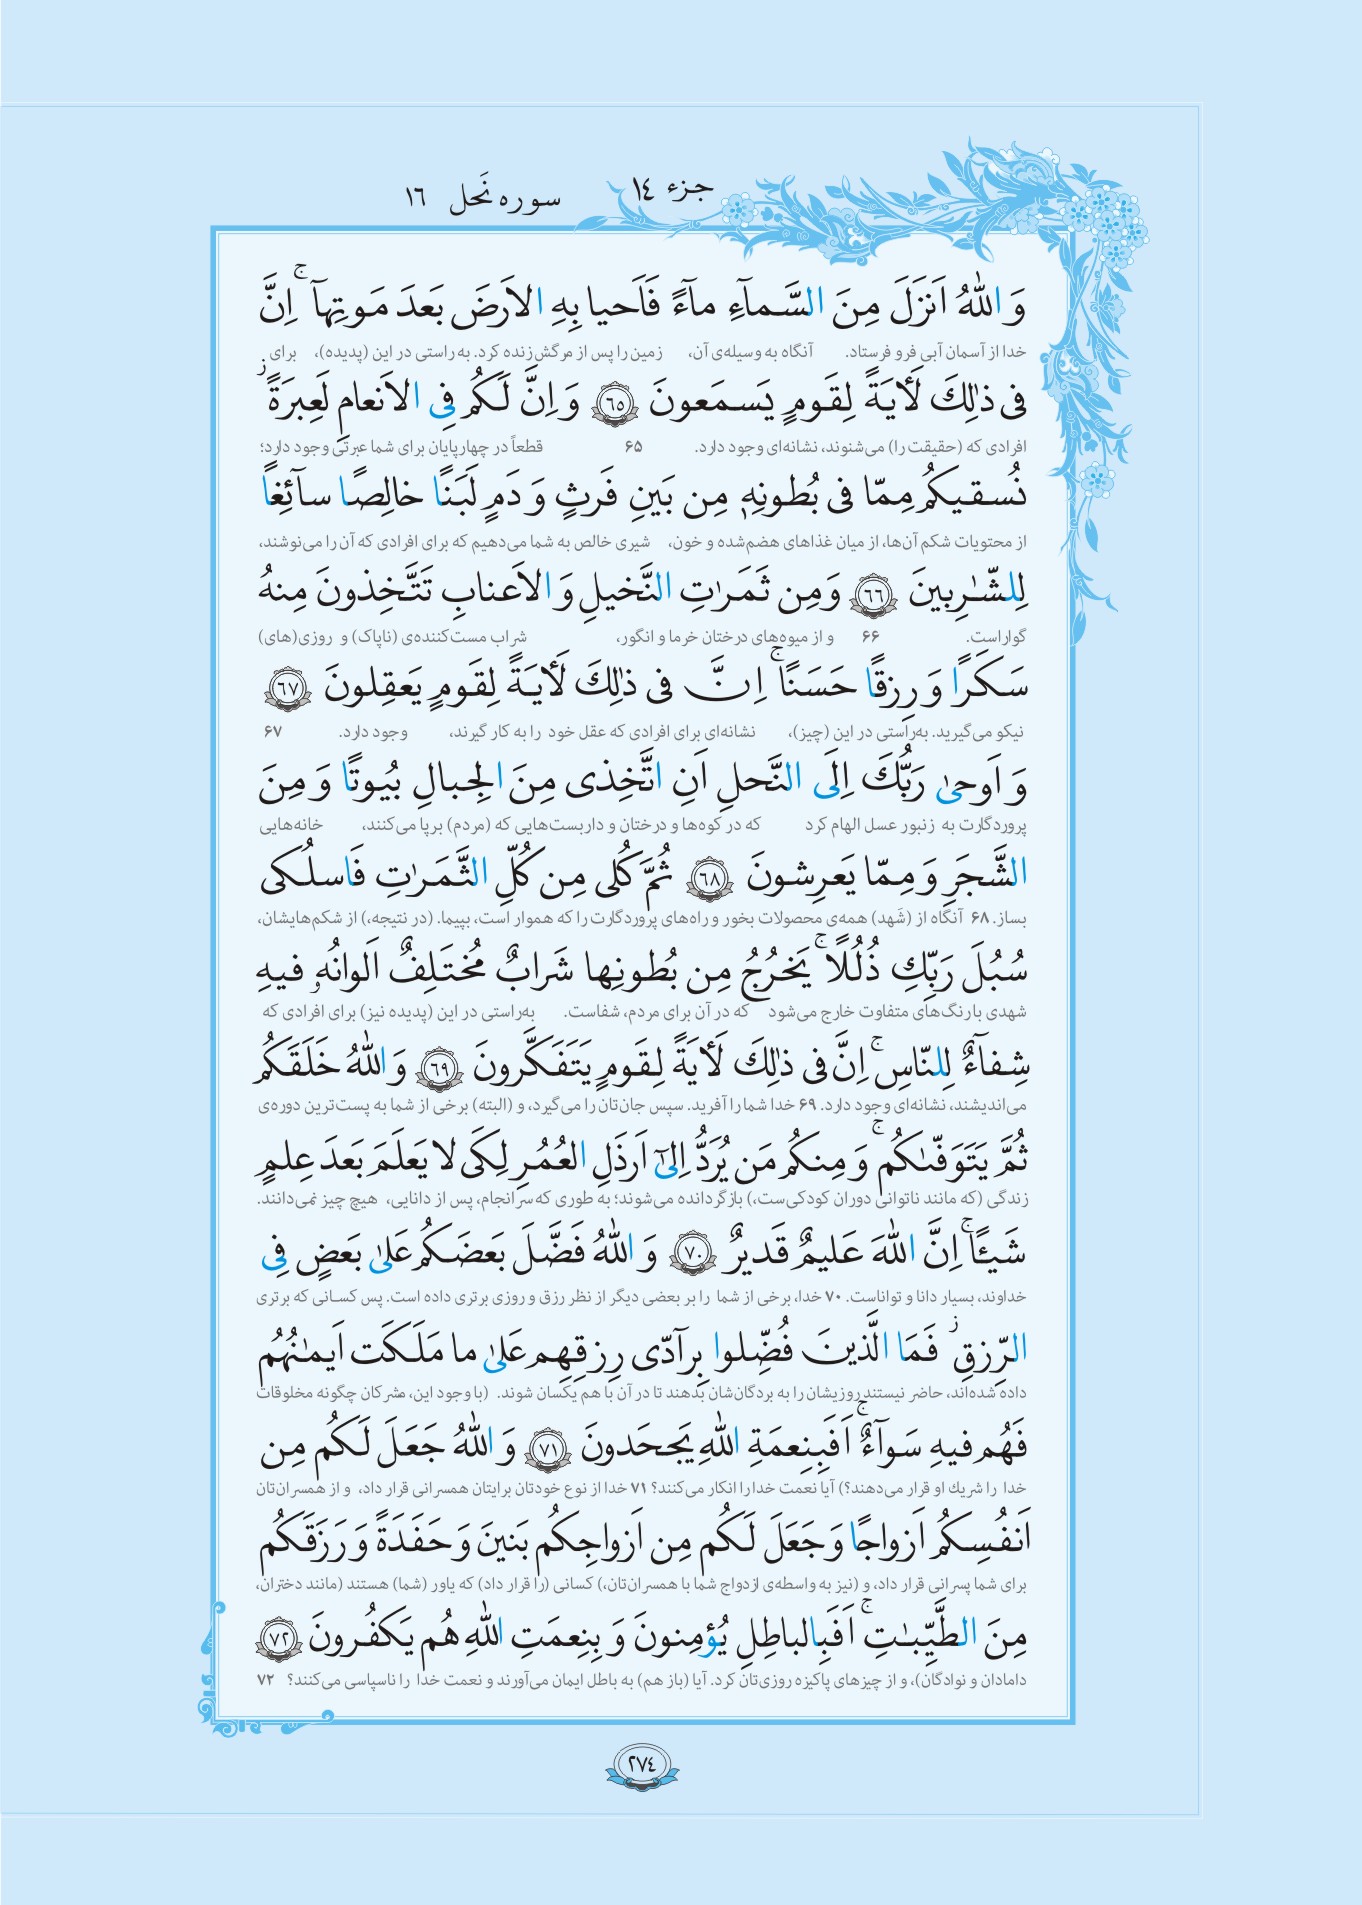 جزء ١٤
سوره نَحل ١٦
وَ اللّٰهُ اَنزَلَ مِنَ السَّمآءِ مآءً فَاَحيا بِهِ الاَرضَ بَعدَ مَوتِهآ ۚ اِنَّ
خدا از آسمان آبی فرو فرستاد. آنگاه به وسیله‌ی آن، زمین را پس از مرگش زنده کرد. به راستی در این (پدیده)، برای
فی ذٰلِكَ لَأيَةً لِقَومٍ يَسمَعونَ ٦٥ وَ اِنَّ لَكُم فِی الاَنعامِ لَعِبرَةً ز
افرادی که (حقیقت را) می‌شنوند، نشانه‌ای وجود دارد. ۶۵ قطعاً در چهارپایان برای شما عبرتی وجود دارد؛
نُسقيكُم مِمّا فی بُطونِهٖ مِن بَينِ فَرثٍ وَ دَمٍ لَبَنًا خالِصًا سآئِغًا
از محتویات شکم آن‌ها، از میان غذاهای هضم‌شده و خون، شیری خالص به شما می‌دهیم که برای افرادی که آن را می‌نوشند،
لِلشّٰرِبينَ ٦٦ وَ مِن ثَمَرٰتِ النَّخيلِ وَ الاَعنابِ تَتَّخِذونَ مِنهُ
گواراست. ۶۶ و از میوه‌های درختان خرما و انگور، شراب مست‌کننده‌ی (ناپاک) و روزی(های)
سَكَرًا وَ رِزقًا حَسَنًا ۚ اِنَّ فی ذٰلِكَ لَأيَةً لِقَومٍ يَعقِلونَ ٦٧
نیکو می‌گیرید. به‌راستی در این (چیز)، نشانه‌ای برای افرادی که عقل خود را به کار گیرند، وجود دارد. ۶۷
وَ اَوحیٰ رَبُّكَ اِلَی النَّحلِ اَنِ اتَّخِذی مِنَ الجِبالِ بُيوتًا وَ مِنَ
پروردگارت به زنبور عسل الهام کرد که در کوه‌ها و درختان و داربست‌هایی که (مردم) برپا می‌کنند، خانه‌هایی
الشَّجَرِ وَ مِمّا يَعرِشونَ ٦٨ ثُمَّ كُلی مِن كُلِّ الثَّمَرٰتِ فَاسلُكی
بساز. ۶۸ آنگاه از (شَهد) همه‌ی محصولات بخور و راه‌های پروردگارت را که هموار است، بپیما. (در نتیجه،) از شکم‌هایشان،
سُبُلَ رَبِّكِ ذُلُلًا ۚ يَخرُجُ مِن بُطونِها شَرابٌ مُختَلِفٌ اَلوانُهٗ فيهِ
شهدی با رنگ‌های متفاوت خارج می‌شود که در آن برای مردم، شفاست. به‌راستی در این (پدیده نیز) برای افرادی که
شِفآءٌ لِلنّاسِ ۚ اِنَّ فی ذٰلِكَ لَأيَةً لِقَومٍ يَتَفَكَّرونَ ٦٩ وَ اللّٰهُ خَلَقَكُم
می‌اندیشند، نشانه‌ای وجود دارد. ۶۹ خدا شما را آفرید. سپس جان‌تان را می‌گیرد، و (البته) برخی از شما به پست‌ترین دوره‌ی
ثُمَّ يَتَوَفّٰىكُم ۚ وَ مِنكُم مَن يُرَدُّ اِلیٰٓ اَرذَلِ العُمُرِ لِكَی لا يَعلَمَ بَعدَ عِلمٍ
زندگی (که مانند ناتوانی دوران کودکی‌ست،) بازگردانده می‌شوند؛ به طوری که سرانجام، پس از دانایی، هیچ چیز نمی‌دانند.
شَيـًٔا ۚ اِنَّ اللّٰهَ عَليمٌ قَديرٌ ٧٠ وَ اللّٰهُ فَضَّلَ بَعضَكُم عَلیٰ بَعضٍ فِی
خداوند، بسیار دانا و تواناست. ۷۰ خدا، برخی از شما را بر بعضی دیگر از نظر رزق و روزی برتری داده است. پس کسانی که برتری
الرِّزقِ ز فَمَا الَّذينَ فُضِّلوا بِرآدّی رِزقِهِم عَلیٰ ما مَلَكَت اَيمٰنُهُم
داده شده‌اند، حاضر نیستند روزیشان را به بردگان‌شان بدهند تا در آن با هم یکسان شوند. (با وجود این، مشرکان چگونه مخلوقات
فَهُم فيهِ سَوآءٌ ۚ اَفَبِنِعمَةِ اللّٰهِ يَجحَدونَ ٧١ وَ اللّٰهُ جَعَلَ لَكُم مِن
خدا را شریك او قرار می‌دهند؟) آیا نعمت خدا را انکار می‌کنند؟ ۷۱ خدا از نوع خودتان برایتان همسرانی قرار داد، و از همسران‌تان
اَنفُسِكُم اَزواجًا وَ جَعَلَ لَكُم مِن اَزواجِكُم بَنينَ وَ حَفَدَةً وَ رَزَقَكُم
برای شما پسرانی قرار داد، و (نیز به واسطه‌ی ازدواج شما با همسران‌تان،) کسانی (را قرار داد) که یاور (شما) هستند (مانند دختران،
مِنَ الطَّيِّبٰتِ ۚ اَفَبِالباطِلِ يُؤمِنونَ وَ بِنِعمَتِ اللّٰهِ هُم يَكفُرونَ ٧٢
دامادان و نوادگان)، و از چیزهای پاکیزه روزی‌تان کرد. آیا (باز هم) به باطل ایمان می‌آورند و نعمت خدا را ناسپاسی می‌کنند؟ ۷۲
٢٧٤